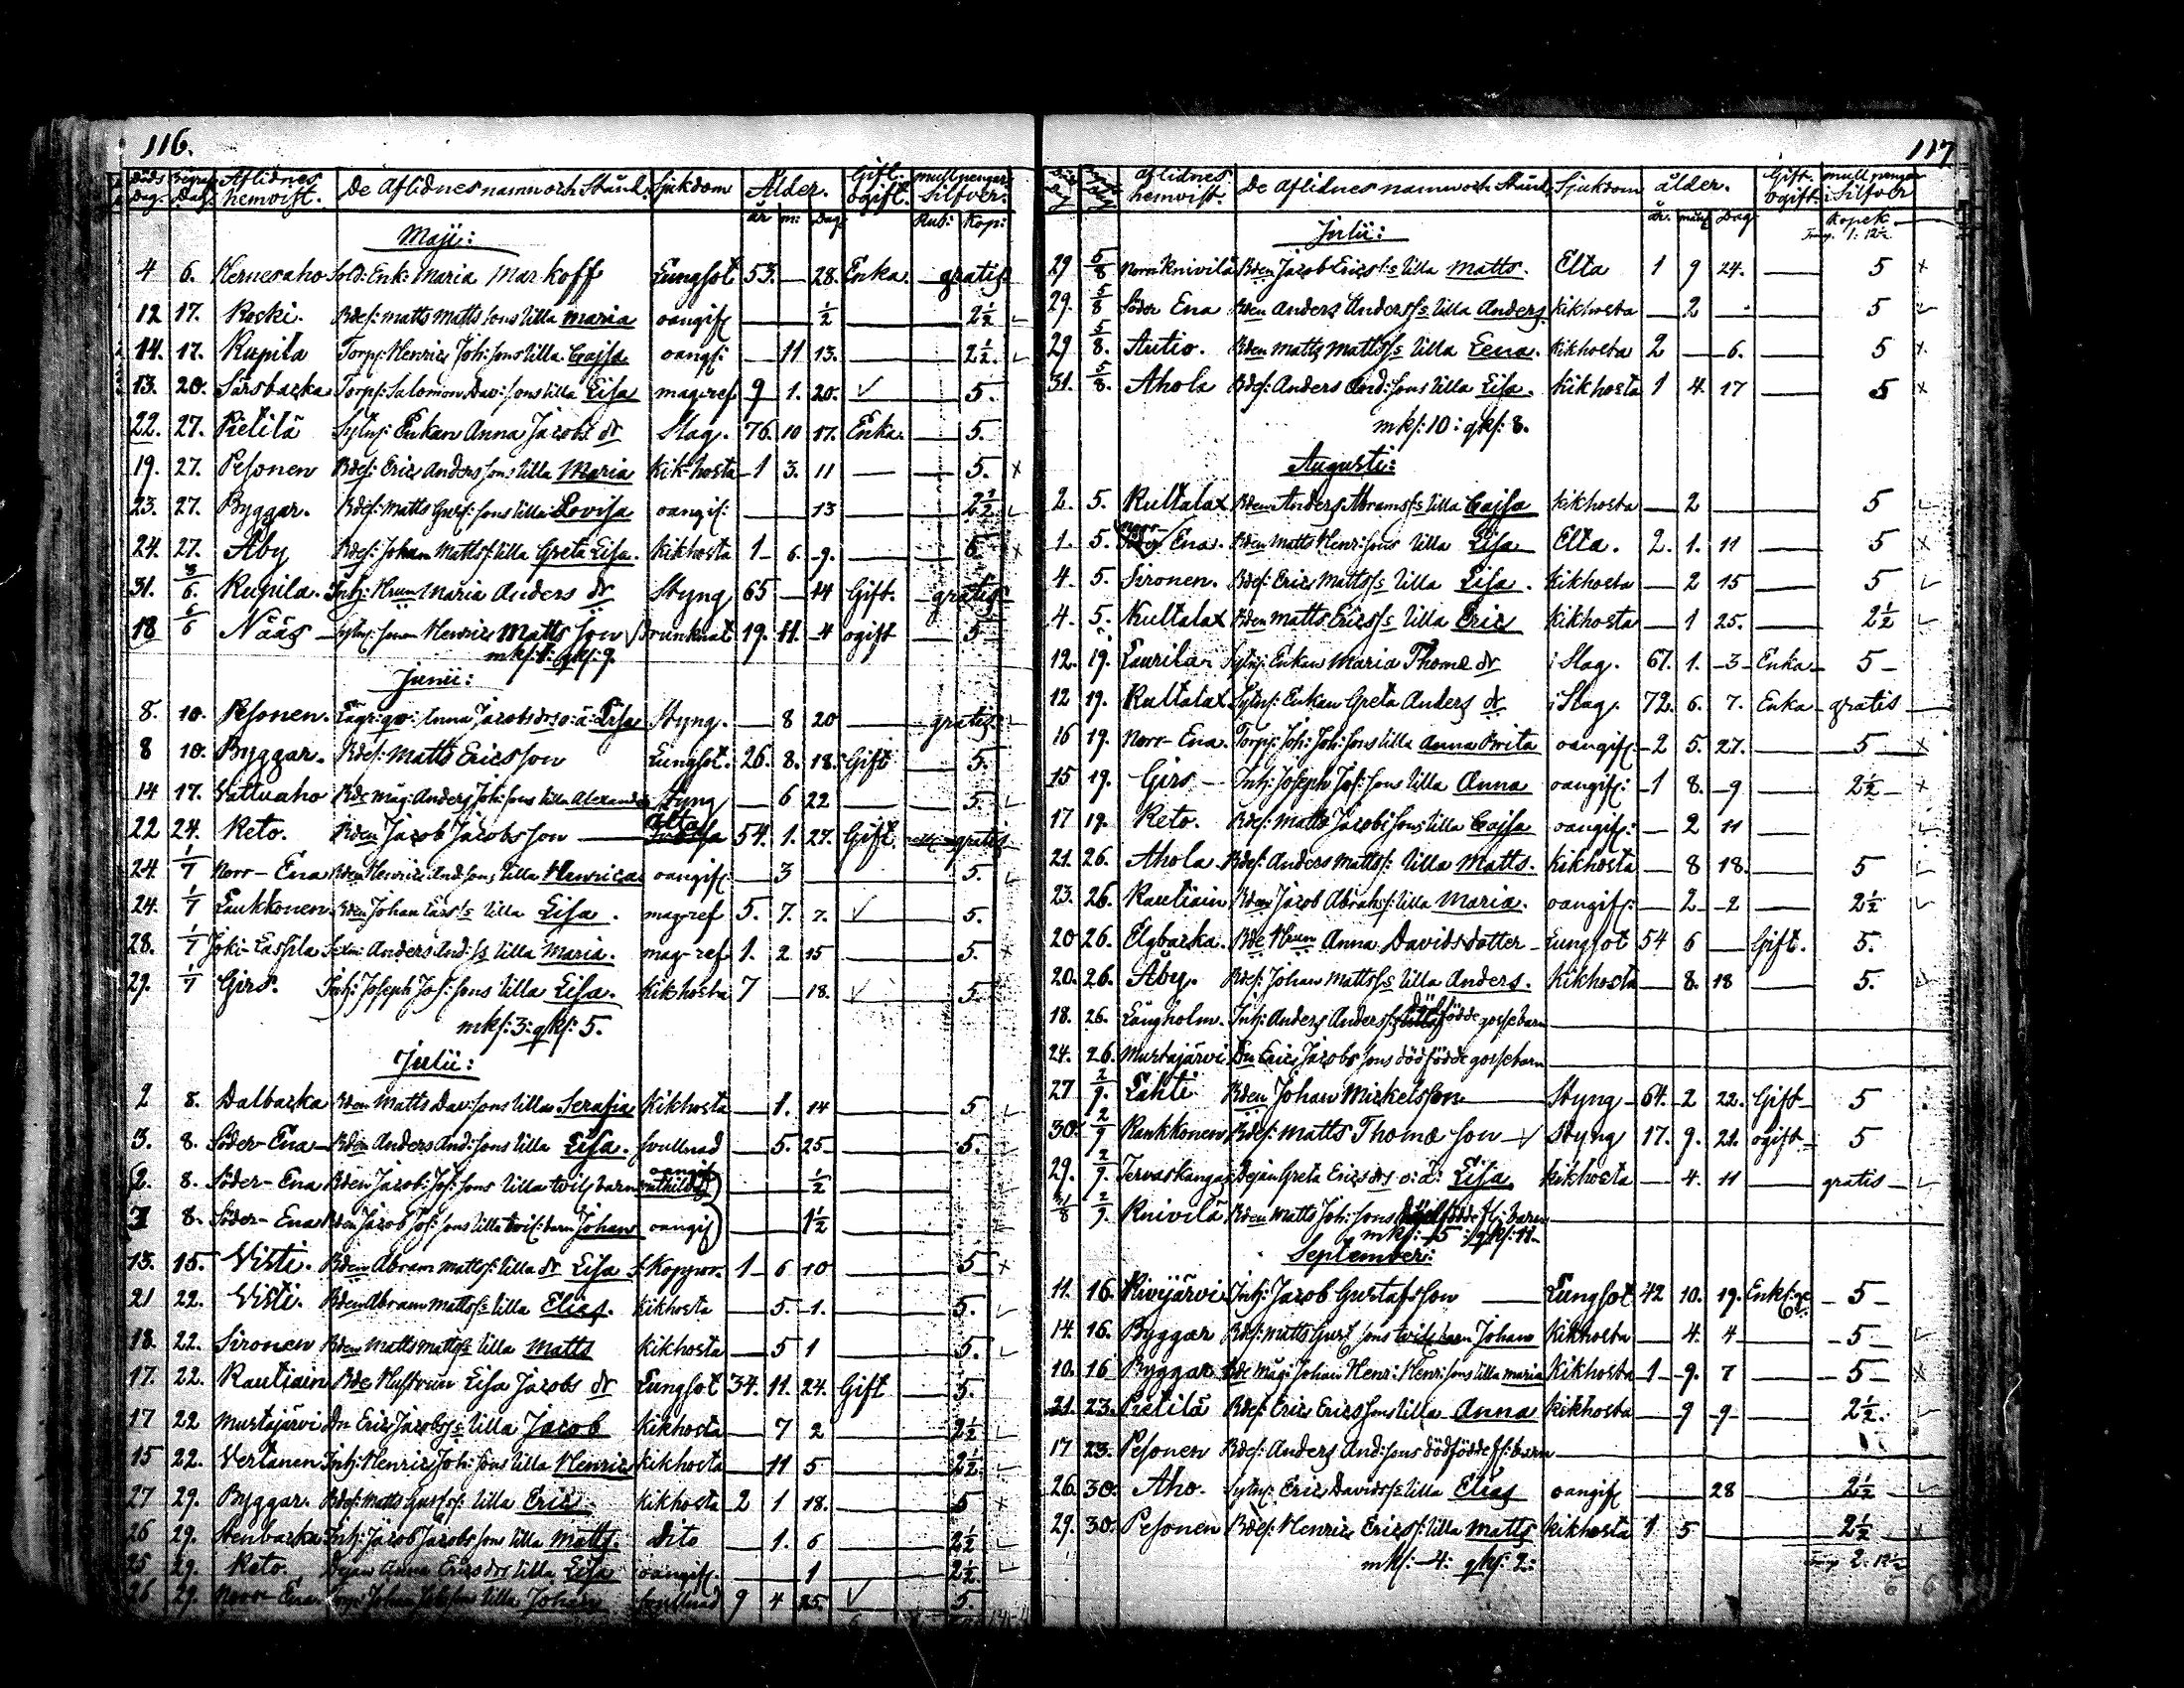 116.
Döds Dag. Begrafn. Dag. Aflidnes hemvist. De Aflidnes namn och Stånd. Sjukdom Ålder. Gift. ogift. mullpengar Silfver.
år m: Dag. Rub: Kop:
Maji:
4 6. Hernesaho Sold: Enk: Maria Markoff Lungsot 53. — 28. Enka. gratis
12 17. Kocki. Bdes: Matts Matts sons lilla Maria oangif: ½ 2½
14. 17. Kupila Torp: Henric Joh: sons lilla Cajsa oangif: — 11 13. 2½.
13. 20. Sårsbacka Torp: Salomon Dav: sons lilla Lisa mag-ref 9 1. 20. 5.
22. 27. Pietilä Sytn: Enkan Anna Jacobs dr Slag. 76. 10 17. Enka. 5.
19. 27. Pesonen Bdes: Eric Anders sons lilla Maria Kik-hosta 1 3. 11 — 5. x
23. 27. Byggar. Bdes: Matts Gust: sons lilla Lovisa oangif: 13 2½
24. 27. Åby Bdes: Johan Matts s: lilla Greta Lisa. Kikhosta 1 6. 9. 5 x
31. 3/6. Kupila. Inh: Hrun Maria Anders dr Styng 65 — 14 Gift. gratis
18 6/6 Nääs Sytn: sonen Henric Matts son Drunknat 19. 11. 4 ogift 5
mks: 1: qks: 9.
Junii:
8. 10. Pesonen. Lägr: qv: Anna Jacobs drs o: ä: Lisa Styng. — 8 20 gratis
8 10. Byggar. Bdes: Matts Ericsson Lungsot. 26. 8. 18. Gift 5.
14 17. Vattuaho Bde måg: Anders Joh: sons lilla Alexander Styng — 6 22 5.
22 24. Keto. Bden Jacob Jacobsson 54. 1. 27. Gift gratis
24 1/7 Norr-Ena Bden Henric And: sons lilla Henrica oangif: — 3 5.
24. 1/7 Laukkonen. Bden Johan Lars s:s lilla Lisa. mag-ref 5. 7. 7. 5.
28. 1/7 Joki-Laspla Anders And: s:s lilla Maria. mag-ref 1. 2 15 5. x
29. 1/7 Girs. Inh: Joseph Jos: sons lilla Lisa. Kikhosta 7 — 18. 5
mks: 3: qks: 5.
Julii:
2 8. Dalbacka Bden Matts Dav: sons lilla Serafia Kikhosta — 1. 14 5
3. 8. Söder-Ena Bden Anders And: sons lilla Lisa. svullnad — 5. 25 5.
2. 8. Söder-Ena Bden Jacob: Jos: sons lilla tvil: barn Mathilda oangif ½
3 8. Söder-Ena Bden Jacob Jos: sons lilla tvil: barn Johan oangif 1½
13. 15. Visti. Bden Abram Matts s: lilla dr Lisa Koppor. 1 6 10 5 x
21 22. Visti. Bden Abram Matts s:s lilla Elias. Kikhosta — 5. 1. 5.
18. 22. Sironen Bden Matts Matts s:s lilla Matts Kikhosta — 5 1 5.
17. 22. Rautiain Bde Hustrun Lisa Jacobs dr Lungsot 34. 11. 24. Gift 5.
17 22 Murtajärvi Dn Eric Jacobs s:s lilla Jacob Kikhosta — 7 2 2½
15 22. Vertanen Inh: Henric Joh: sons lilla Henric Kikhosta — 11 5 2½
27 29. Byggar. Bdes: Matts Gust: s: lilla Eric Kikhosta 2 1 18. 5 x
26 29. Stenbacka Inh: Jacob Jacobs sons lilla Matts. dito — 1. 6 2½
25 29. Keto. Dejan Anna Erics drs lilla Lisa oangif. 1 2½.
26 29. Norr-Ena Torp: Johan Joh: sons lilla Johan svullnad 9 4 25. 5.
117
Aflidnes hemvist. De Aflidnes namn och Stånd, Sjukdom ålder. Gift. ogift. mullpengar i Silfver
år. mån Dag. Kopek.
Julii:
29 5/8 Norr-Knivilä Bden Jacob Erics s:s lilla Matts. Elta 1 9 24. — 5 x
29. 5/8 Söder Ena Bden Anders Anders s:s lilla Anders. Kikhosta — 2 5
29 5/8. Autio. Bden Matts Matts s:s lilla Lena. Kikhosta 2 — 6. 5 x
31. 5/8. Ahola Bdes: Anders And: sons lilla Lisa. Kikhosta 1 4. 17 5 x
mks: 10: qks: 8.
Augusti:
2. 5. Kultalax Bden Anders Abrams s:s lilla Cajsa Kikhosta — 2 5
1. 5. Norr-Ena. Bden Matts Henr: sons lilla Lisa Elta. 2. 1. 11 5 x
4. 5. Sironen. Bdes: Eric Matts s:s lilla Lisa. Kikhosta — 2 15 5
4. 5. Kultalax Bden Matts Erics s:s lilla Eric Kikhosta — 1 25. 2½
12. 19. Laurila Sytn: Enkan Maria Thome dr i Slag. 67. 1. 3 Enka 5
12 19. Kultalax Sytn: Enkan Greta Anders dr i Slag. 72. 6. 7. Enka gratis
16 19. Norr-Ena. Torp: Joh: Joh: sons lilla Anna Brita oangif: 2 5. 27. 5 x
15 19. Girs Inh: Joseph Jos: sons lilla Anna oangif: 1 8. 9 2½ x
17 19. Keto. Bdes: Matts Jacobs sons lilla Cajsa oangif: — 2 11
21. 26. Ahola. Bdes: Anders Matts s: lilla Matts. Kikhosta — 8 18. 5
23. 26. Rautiain Bden Jacob Abrahs s: lilla Maria. oangif: — 2 2 2½
20 26. Elgbacka. Bde Hrun Anna Davidsdotter Lungsot 54 6 — Gift. 5.
20. 26. Åby. Bdes: Johan Matts s:s lilla Anders. Kikhosta — 8. 18 5.
18. 26. Långholm. Inh: Anders Anders s: dödfödde gossebarn
24. 26. Murtajärvi Dn Eric Jacobs sons dödfödde gossebarn
27 2/9. Lahti Bden Johan Mickelsson Styng 64. 2 22. Gift 5
30. 2/9 Kankkonen Bdes: Matts Thomæ son Styng 17. 9. 21. ogift 5
29. 2/9. Tervaskangas Dejan Greta Erics drs o: ä: Lisa. Kikhosta — 4. 11 gratis
31/8 2/9. Knivilä Bden Matts Joh: sons dödfödde fl: barn
mks: 15: qks: 11.
September:
11. 16. Kivijärvi Inh: Jacob Gustafsson Lungsot 42 10. 19. 5
14. 16. Byggar Bdes: Matts Gust sons tvil: barn Johan Kikhosta — 4. 4 5
10. 16 Byggar Bde måg: Johan Henr: Henr: sons lilla Maria Kikhosta 1 9. 7 5 x
21. 23. Pietilä Bdes: Eric Erics sons lilla Anna Kikhosta — 9 9 2½.
17 23. Pesonen Bdes: Anders And: sons dödfödde fl: barn
26. 30. Aho. Sytn: Eric Davids s:s lilla Elias oangif 28 2½
29. 30. Pesonen Bdes: Henric Erics s: lilla Matts Kikhosta 1 5 2½ x
mks: 4: qks: 2: